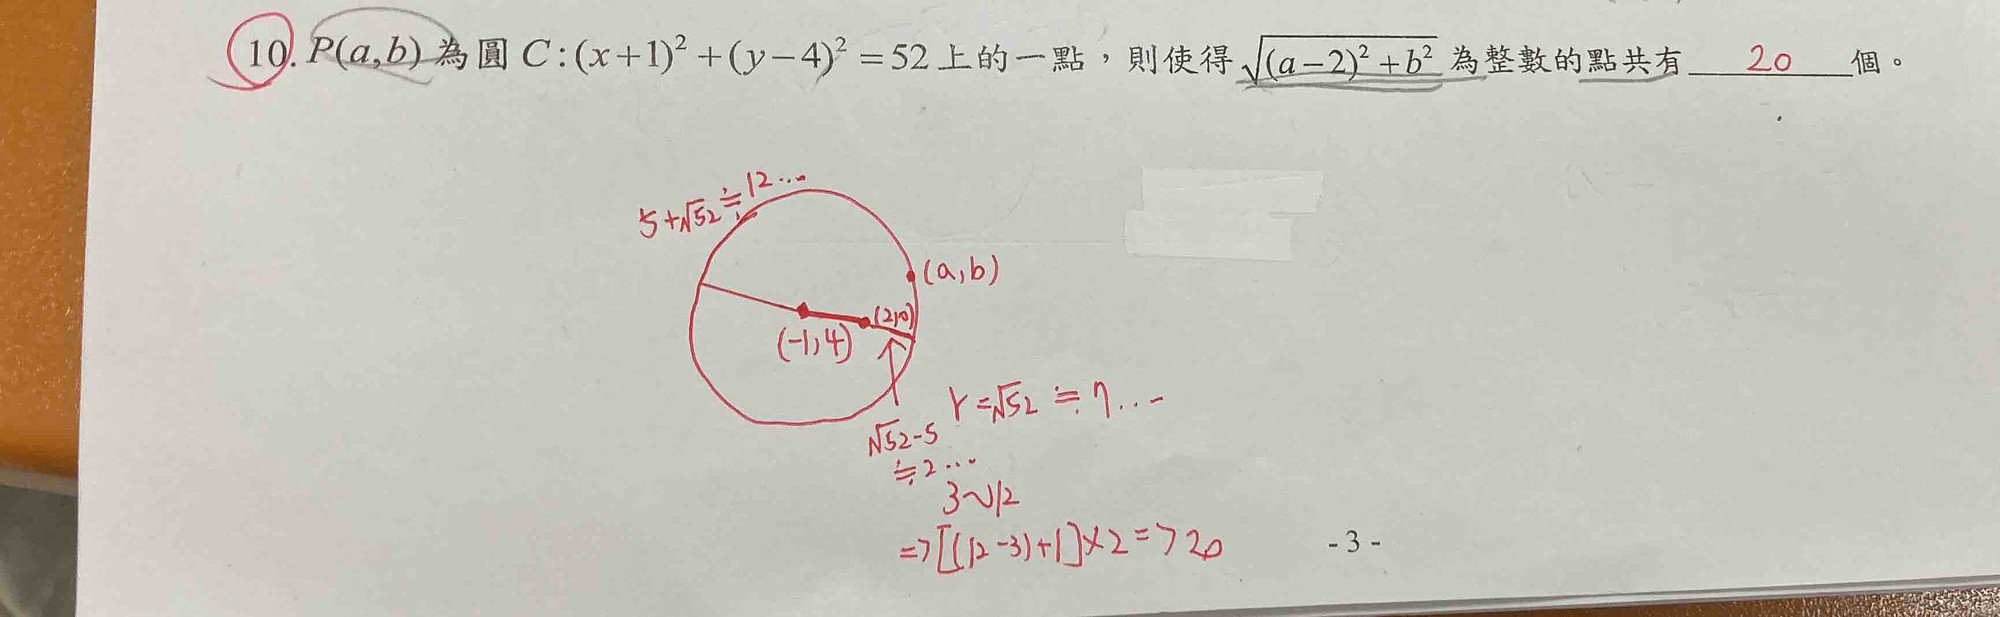 10. P(a,b) 為圓 C:(x+1)²+(y−4)²=52 上的一點，則使得 √((a−2)²+b²) 為整數的點共有 20 個。
5+√52≒12…
(a,b)
(2,0)
(-1,4)
r=√52≒7…
√52-5
≒2…
3~12
=>[(12-3)+1]×2=>20
- 3 -